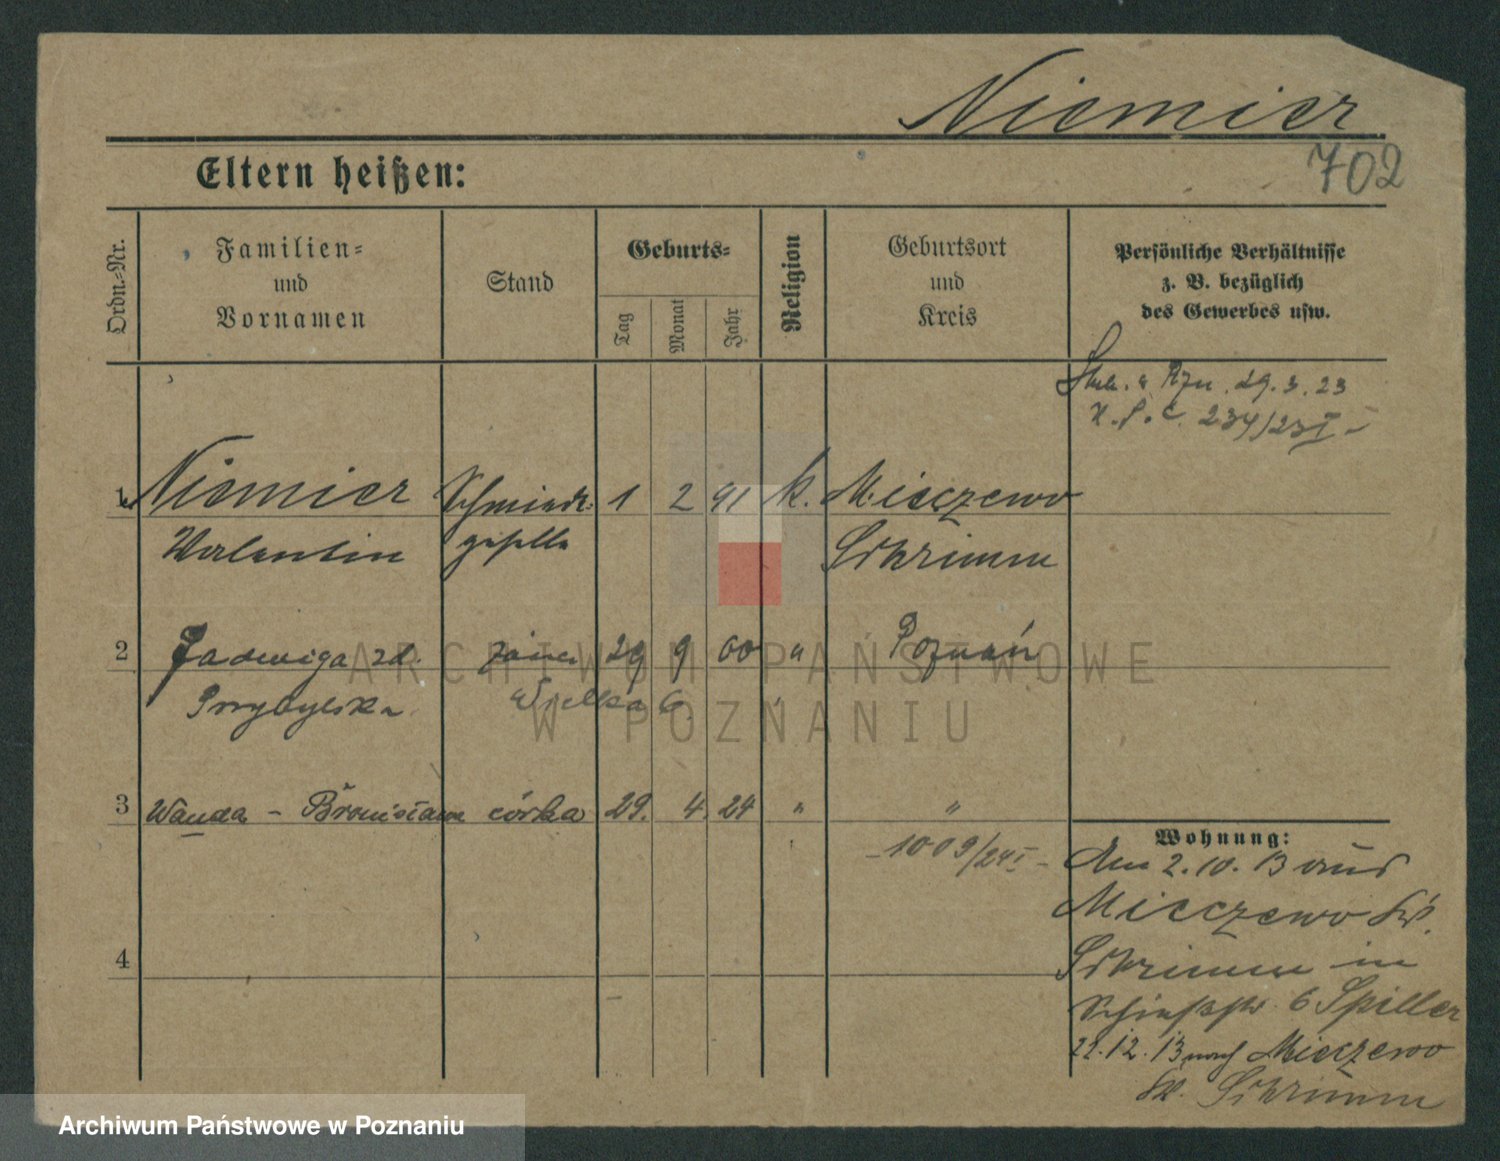 Niemier
702
Eltern heißen:
Ordn.=Nr.
Familien=
und
Vornamen
Stand
Geburts=
Tag
Monat
Jahr
Religion
Geburtsort
und
Kreis
Persönliche Verhältnisse
z. B. bezüglich
des Gewerbes usw.
29.3.23
234/23 I -
1. Niemier Schmiede= 1 2 91 k. Mieczewo
Valentin geselle Schrimm
2 Jadwiga zd. żona 29 9 00 " Poznań
Przybylska Wielka 6.
3 Wanda - Bronisława córka 29. 4. 24 " "
- 1009/24 I -
4
Wohnung:
Am 2.10.13 aus
Mieczewo Kr.
Schrimm in
Schießstr. 6 Spiller
22.12.13 nach Mieczewo
Kr. Schrimm
ARCHIWUM PAŃSTWOWE
W POZNANIU
Archiwum Państwowe w Poznaniu